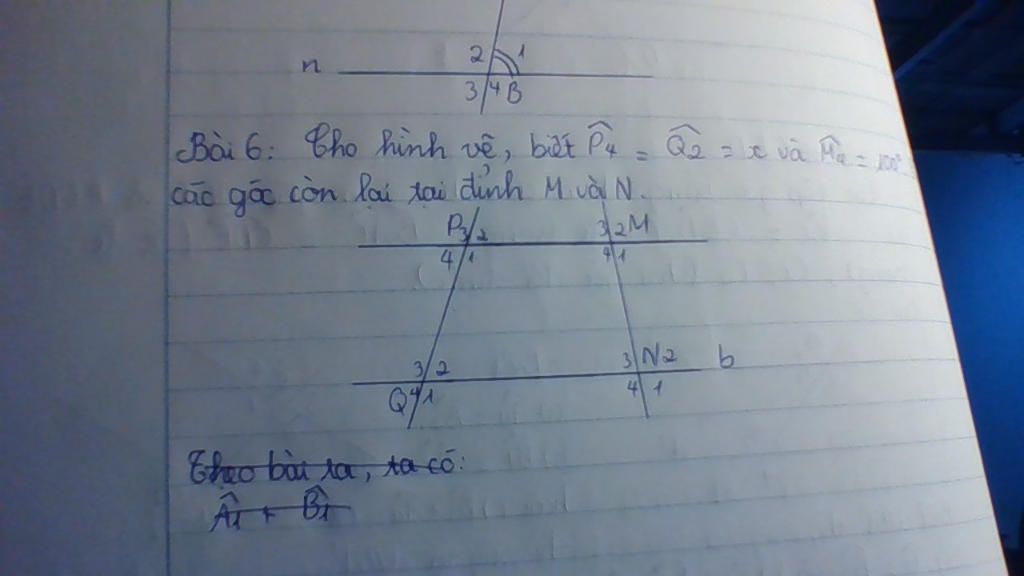 2 1
n
3 4 B
Bài 6: Cho hình vẽ, biết P̂4 = Q̂2 = x và M̂4 = 100°
các góc còn lại tại đỉnh M và N.
P 3 2 3 2 M
4 1 4 1
3 2 3 N 2 b
Q 4 1 4 1
Theo bài ra, ta có:
Â1 + B̂1